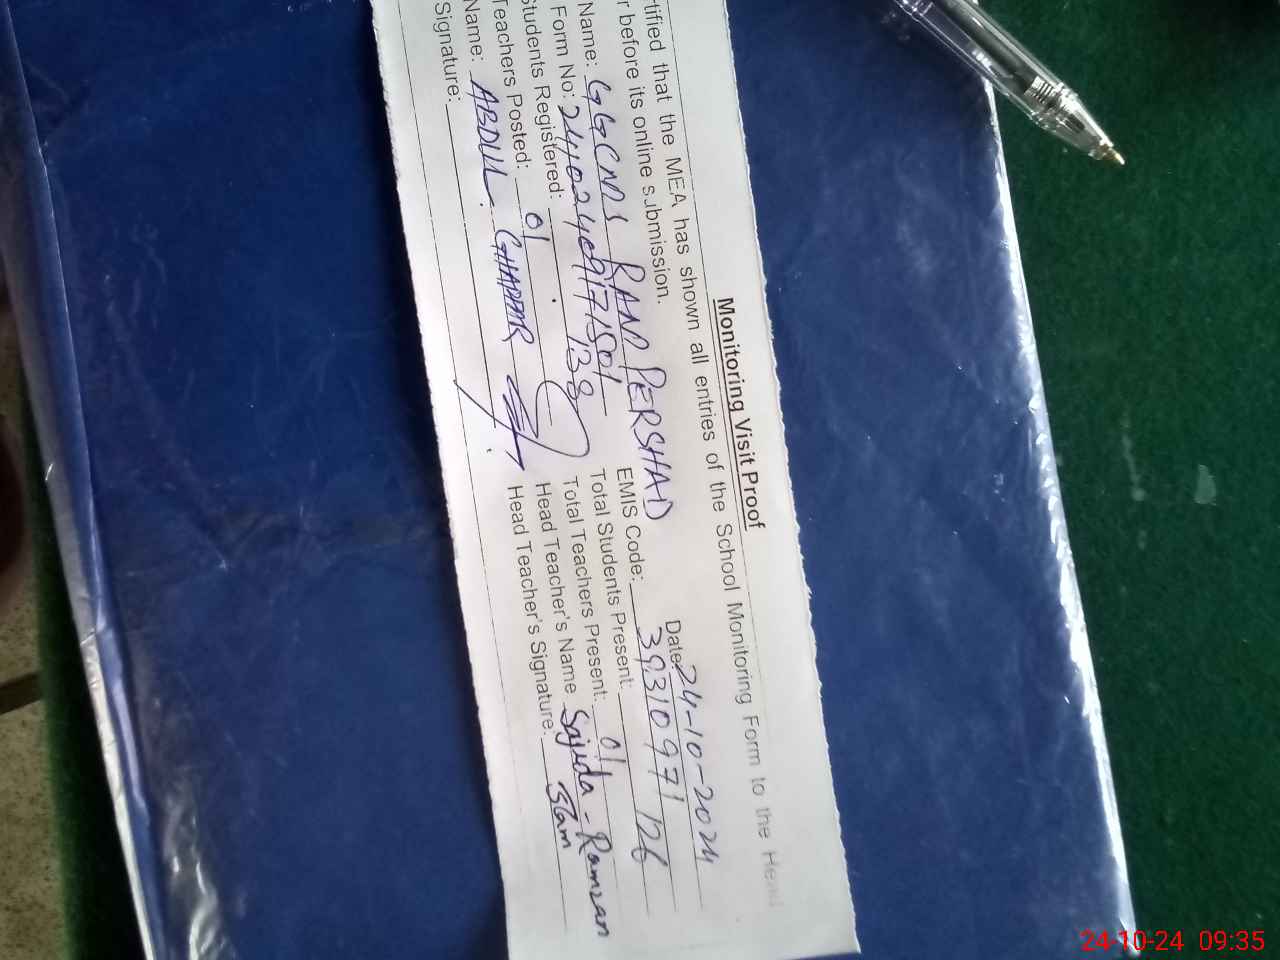 Monitoring Visit Proof
Date: 24-10-2024
rtified that the MEA has shown all entries of the School Monitoring Form to the Head
r before its online submission.
Name: GGCMS RAM PERSHAD EMIS Code: 39310971
Form No: Total Students Present: 126
Students Registered: 138 Total Teachers Present: 01
Teachers Posted: 01 Head Teacher's Name Sajida - Ramzan
Name: ABDUL GHAFFAR Head Teacher's Signature:
Signature:
24-10-24 09:35